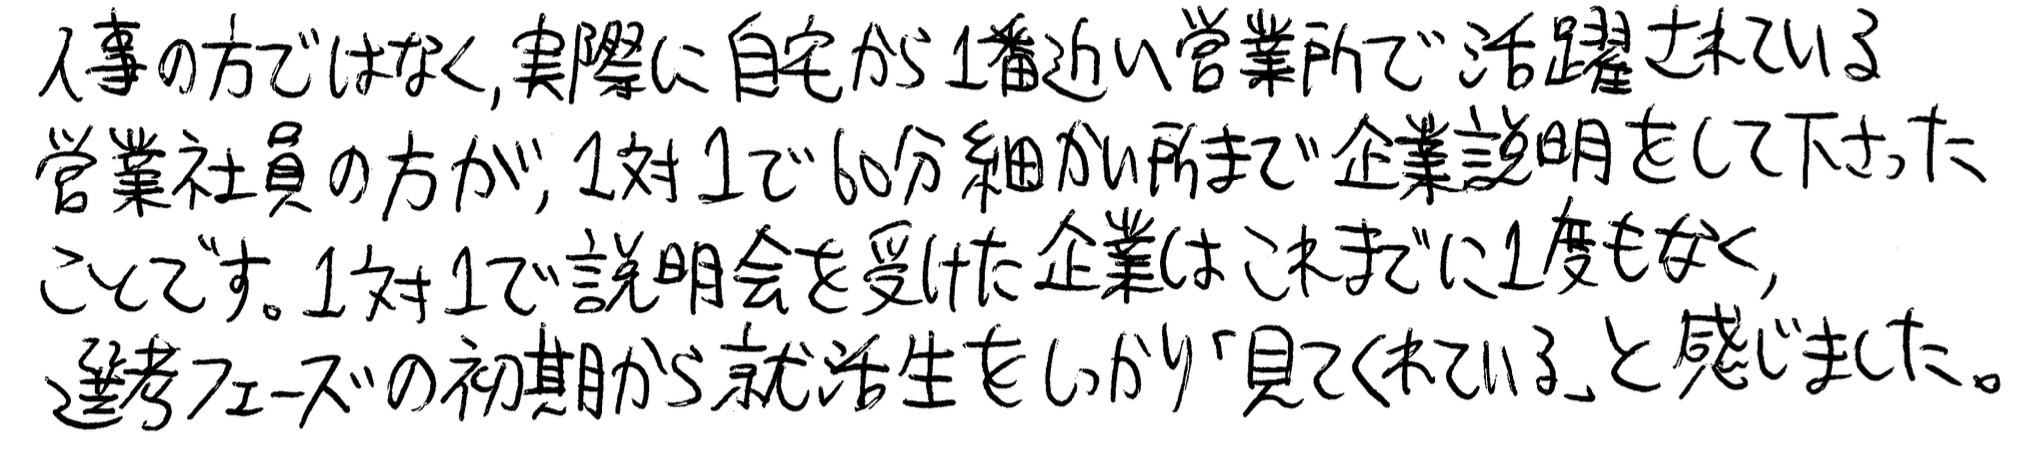 人事の方ではなく,実際に自宅から1番近い営業所で活躍されている
営業社員の方が,1対1で60分細かい所まで企業説明をして下さった
ことです。1対1で説明会を受けた企業はこれまでに1度もなく,
選考フェーズの初期から就活生をしっかり「見てくれている」と感じました。